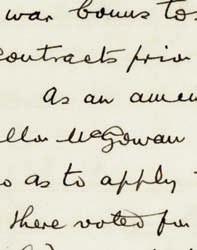 war bonus to
contracts prior
As an amen
llor McGowan
o as to apply
there voted for